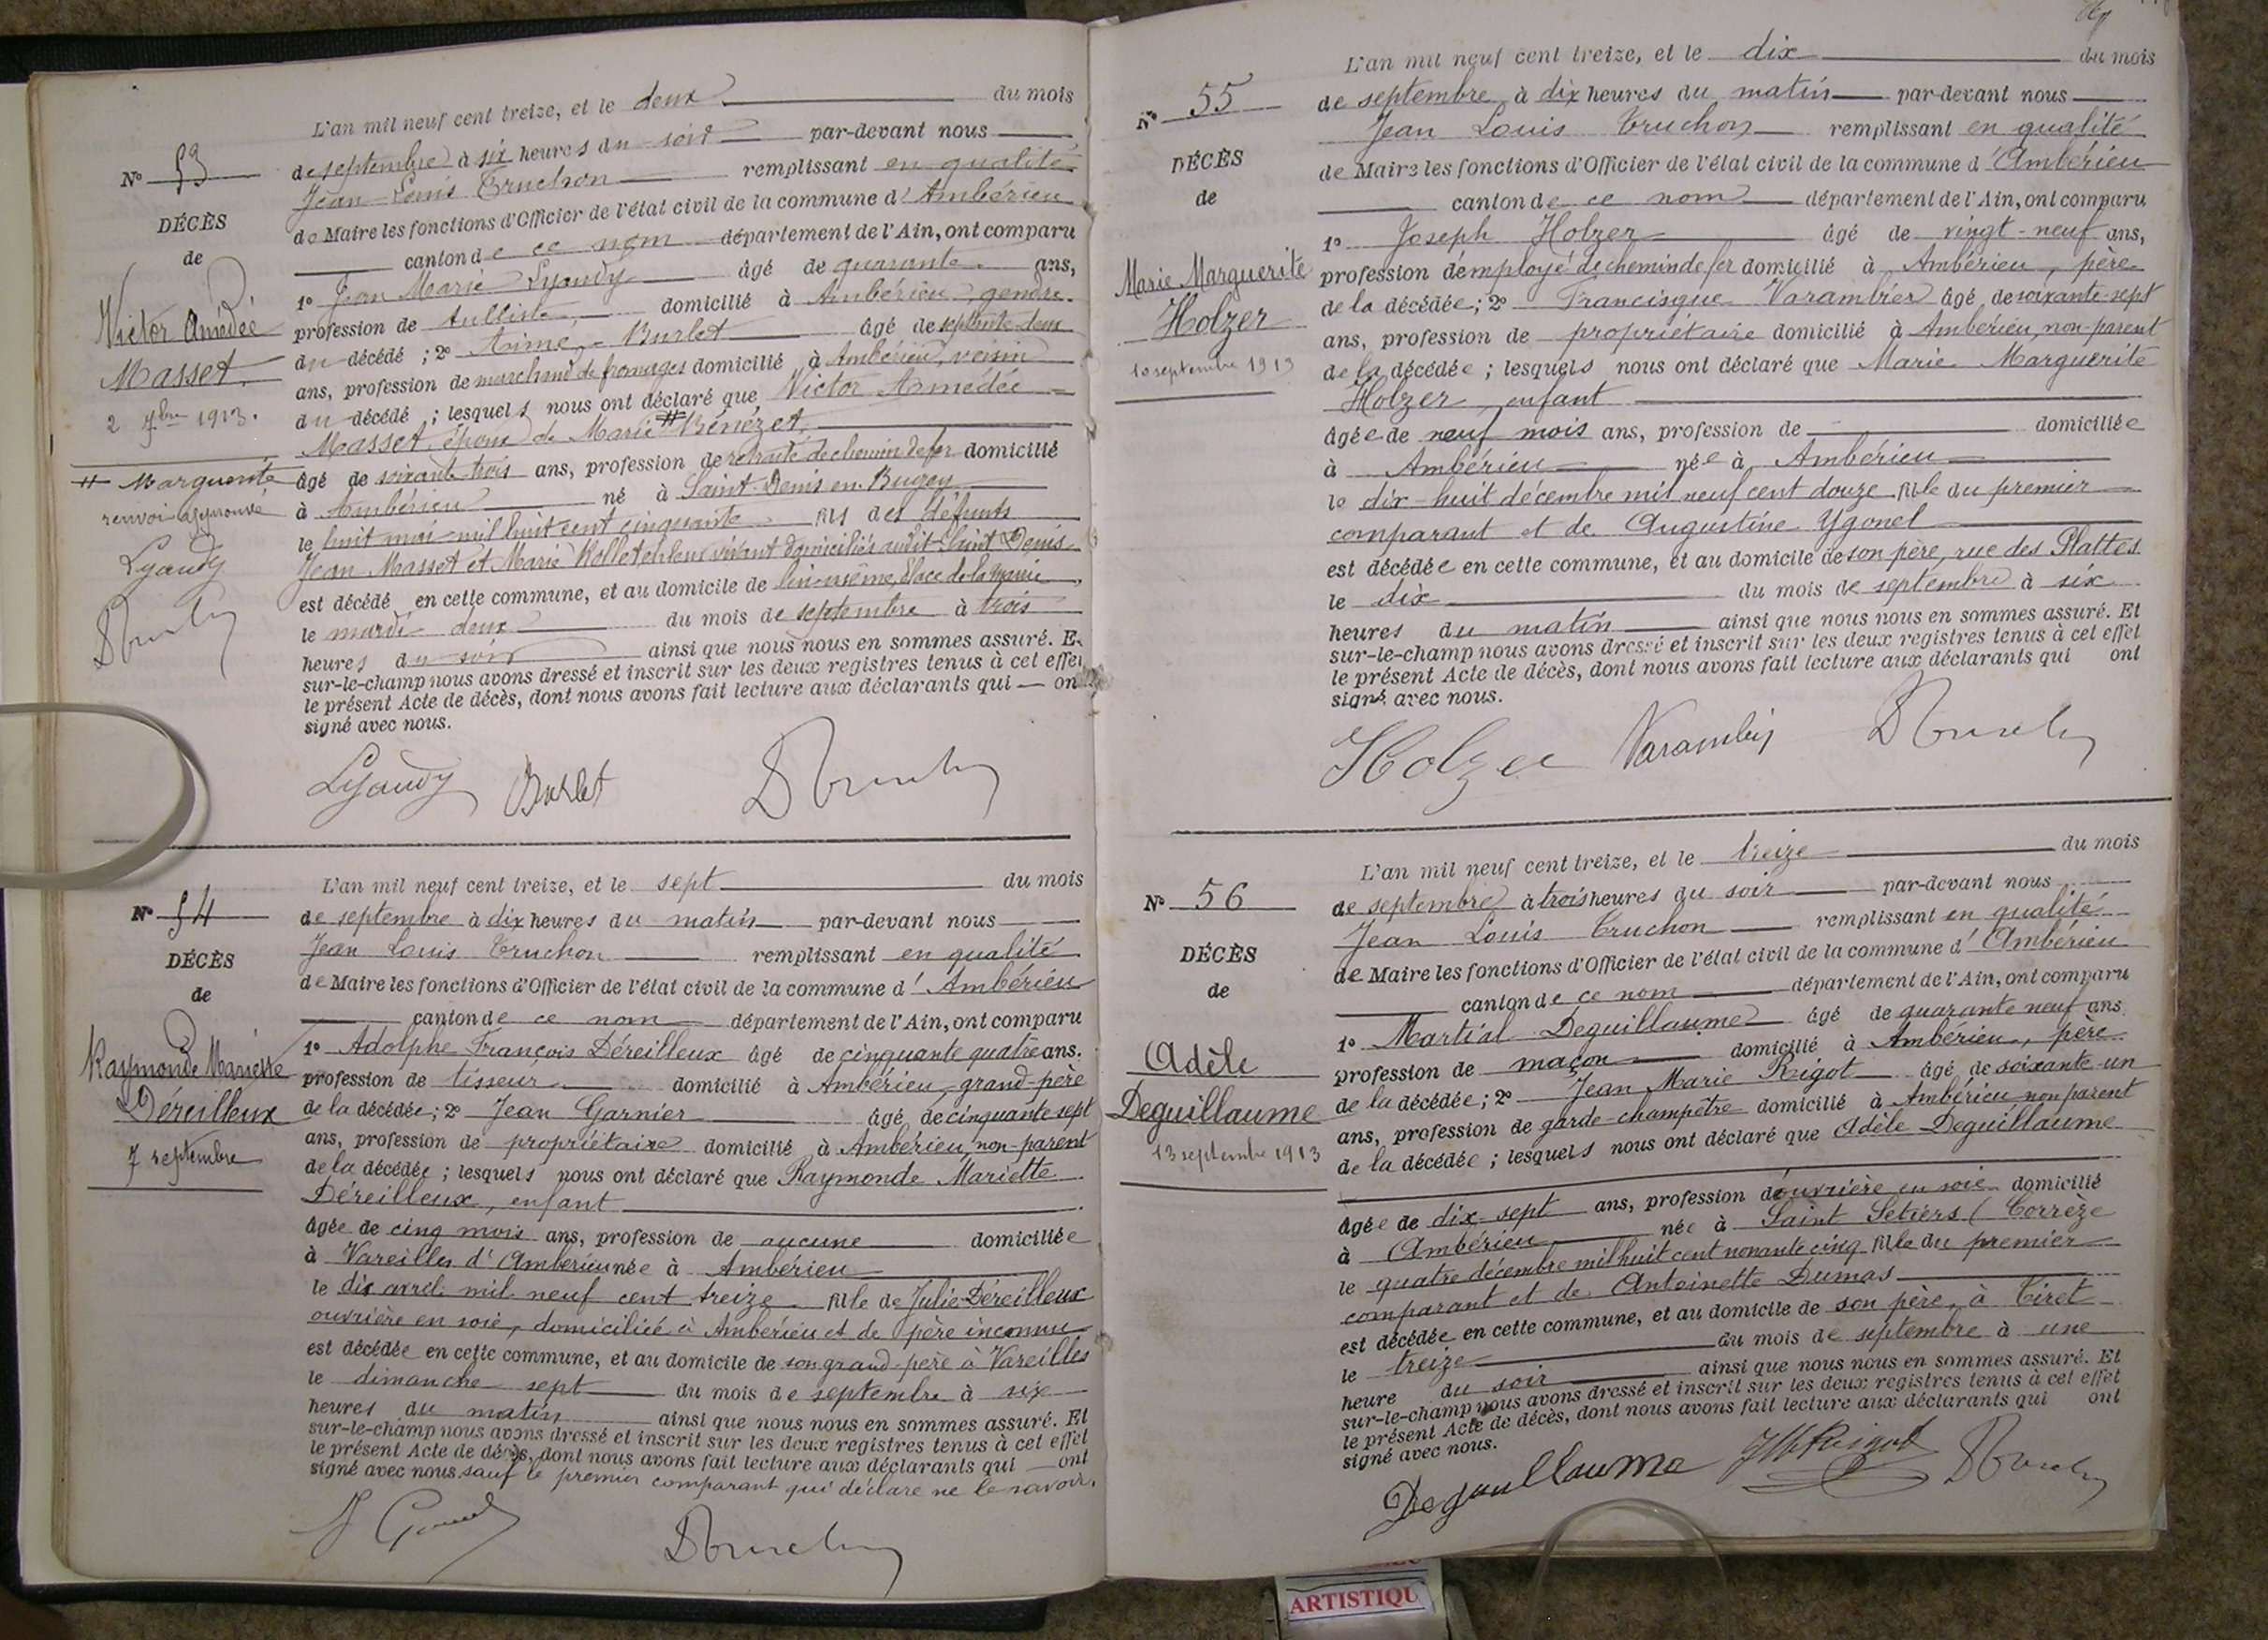 L'an mil neuf cent treize, et le deux du mois
de septembre à six heures du soir par-devant nous
Jean-Louis Truchon remplissant en qualité
de Maire les fonctions d'Officier de l'état civil de la commune d'Ambérieu
canton de ce nom département de l'Ain, ont comparu
1º Jean Marie Lyaudy âgé de quarante ans,
profession de tulliste domicilié à Ambérieu, gendre
du décédé ; 2º Aimé Burlet âgé de septante deux
ans, profession de marchand de fromages domicilié à Ambérieu, voisin
du décédé ; lesquels nous ont déclaré que Victor Amédée
Masset, époux de Marie # Bénézet,
âgé de soixante-trois ans, profession de retraité de chemin de fer domicilié
à Ambérieu né à Saint-Denis en Bugey
le huit mai mil huit cent cinquante fils des défunts
Jean Masset et Marie vivant domiciliés audit Saint Denis
est décédé en cette commune, et au domicile de lui-même, Place de la Mairie
le mardi deux du mois de septembre à trois
heures du soir ainsi que nous nous en sommes assuré. Et
sur-le-champ nous avons dressé et inscrit sur les deux registres tenus à cet effet
le présent Acte de décès, dont nous avons fait lecture aux déclarants qui ont
signé avec nous.
Lyaudy Burlet
Nº 53
DÉCÈS
de
Victor Amédée
Masset
2 7bre 1913.
# Marguerite
renvoi approuvé
Lyaudy
L'an mil neuf cent treize, et le sept du mois
de septembre à dix heures du matin par-devant nous
Jean Louis Truchon remplissant en qualité
de Maire les fonctions d'Officier de l'état civil de la commune d'Ambérieu
canton de ce nom département de l'Ain, ont comparu
1º Adolphe François Déreilleux âgé de cinquante quatre ans.
profession de tisseur domicilié à Ambérieu, grand-père
de la décédée ; 2º Jean Garnier âgé de cinquante sept
ans, profession de propriétaire domicilié à Ambérieu, non-parent
de la décédée ; lesquels nous ont déclaré que Raymonde Mariette
Déreilleux, enfant
âgée de cinq mois ans, profession de aucune domiciliée
à Vareilles d'Ambérieu née à Ambérieu
le dix avril mil neuf cent treize fille de Julie Déreilleux
ouvrière en soie, domiciliée à Ambérieu et de père inconnu
est décédée en cette commune, et au domicile de son grand-père à Vareilles
le dimanche sept du mois de septembre à six
heures du matin ainsi que nous nous en sommes assuré. Et
sur-le-champ nous avons dressé et inscrit sur les deux registres tenus à cet effet
le présent Acte de décès, dont nous avons fait lecture aux déclarants qui ont
signé avec nous sauf le premier comparant qui déclare ne le savoir.
Nº 54
DÉCÈS
de
Raymonde Mariette
Déreilleux
7 septembre
L'an mil neuf cent treize, et le dix du mois
de septembre à dix heures du matin par-devant nous
Jean Louis Truchon remplissant en qualité
de Maire les fonctions d'Officier de l'état civil de la commune d'Ambérieu
canton de ce nom département de l'Ain, ont comparu
1º Joseph Holzer âgé de vingt-neuf ans,
profession d'employé de chemin de fer domicilié à Ambérieu, père
de la décédée ; 2º Francisque Varambier âgé de soixante-sept
ans, profession de propriétaire domicilié à Ambérieu, non-parent
de la décédée ; lesquels nous ont déclaré que Marie Marguerite
Holzer, enfant
âgée de neuf mois ans, profession de domiciliée
à Ambérieu née à Ambérieu
le dix-huit décembre mil neuf cent douze fille du premier
comparant et de Augustine Ygonel
est décédée en cette commune, et au domicile de son père, rue des Plattes
le dix du mois de septembre à six
heures du matin ainsi que nous nous en sommes assuré. Et
sur-le-champ nous avons dressé et inscrit sur les deux registres tenus à cet effet
le présent Acte de décès, dont nous avons fait lecture aux déclarants qui ont
signé avec nous.
Holzer
Nº 55
DÉCÈS
de
Marie Marguerite
Holzer
10 septembre 1913
L'an mil neuf cent treize, et le treize du mois
de septembre à trois heures du soir par-devant nous
Jean Louis Truchon remplissant en qualité
de Maire les fonctions d'Officier de l'état civil de la commune d'Ambérieu
canton de ce nom département de l'Ain, ont comparu
1º Martial Deguillaume âgé de quarante neuf ans
profession de maçon domicilié à Ambérieu, père
de la décédée ; 2º Jean Marie Rigot âgé de soixante-un
ans, profession de garde champêtre domicilié à Ambérieu non parent
de la décédée ; lesquels nous ont déclaré que Adèle Deguillaume
âgée de dix-sept ans, profession d'ouvrière en soie domicilié
à Ambérieu née à Saint Setiers (Corrèze
le quatre décembre mil huit cent nonante cinq fille du premier
comparant et de Antoinette Dumas
est décédée en cette commune, et au domicile de son père, à Tiret
le treize du mois de septembre à une
heure du soir ainsi que nous nous en sommes assuré. Et
sur-le-champ nous avons dressé et inscrit sur les deux registres tenus à cet effet
le présent Acte de décès, dont nous avons fait lecture aux déclarants qui ont
signé avec nous.
Deguillaume JM Rigot
Nº 56
DÉCÈS
de
Adèle
Deguillaume
13 septembre 1913
ARTISTIQU